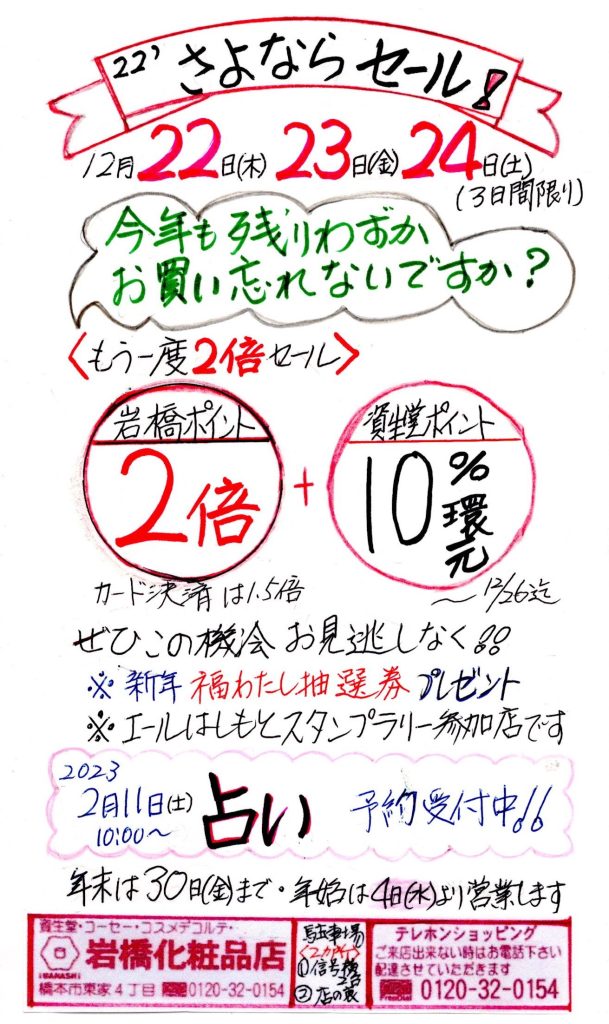 22' さよならセール!
12月22日(木) 23日(金) 24日(土)
(3日間限り)
今年も残りわずか
お買い忘れないですか?
<もう一度2倍セール>
岩橋ポイント
2倍
+
資生堂ポイント
10%還元
カード決済は1.5倍
～12/26迄
ぜひこの機会お見逃しなく!!
※新年福わたし抽選券プレゼント
※エールはしもとスタンプラリー参加店です
2023
2月11日(土)
10:00～
占い
予約受付中!!
年末は30日(金)まで・年始は4日(水)より営業します
資生堂・コーセー・コスメデコルテ・
IWAHASHI
岩橋化粧品店
橋本市東家4丁目 0120-32-0154
駐車場
<2カ所>
①信号機
②店の裏
テレホンショッピング
ご来店出来ない時はお電話下さい
配達させていただきます
FreeDial
0120-32-0154